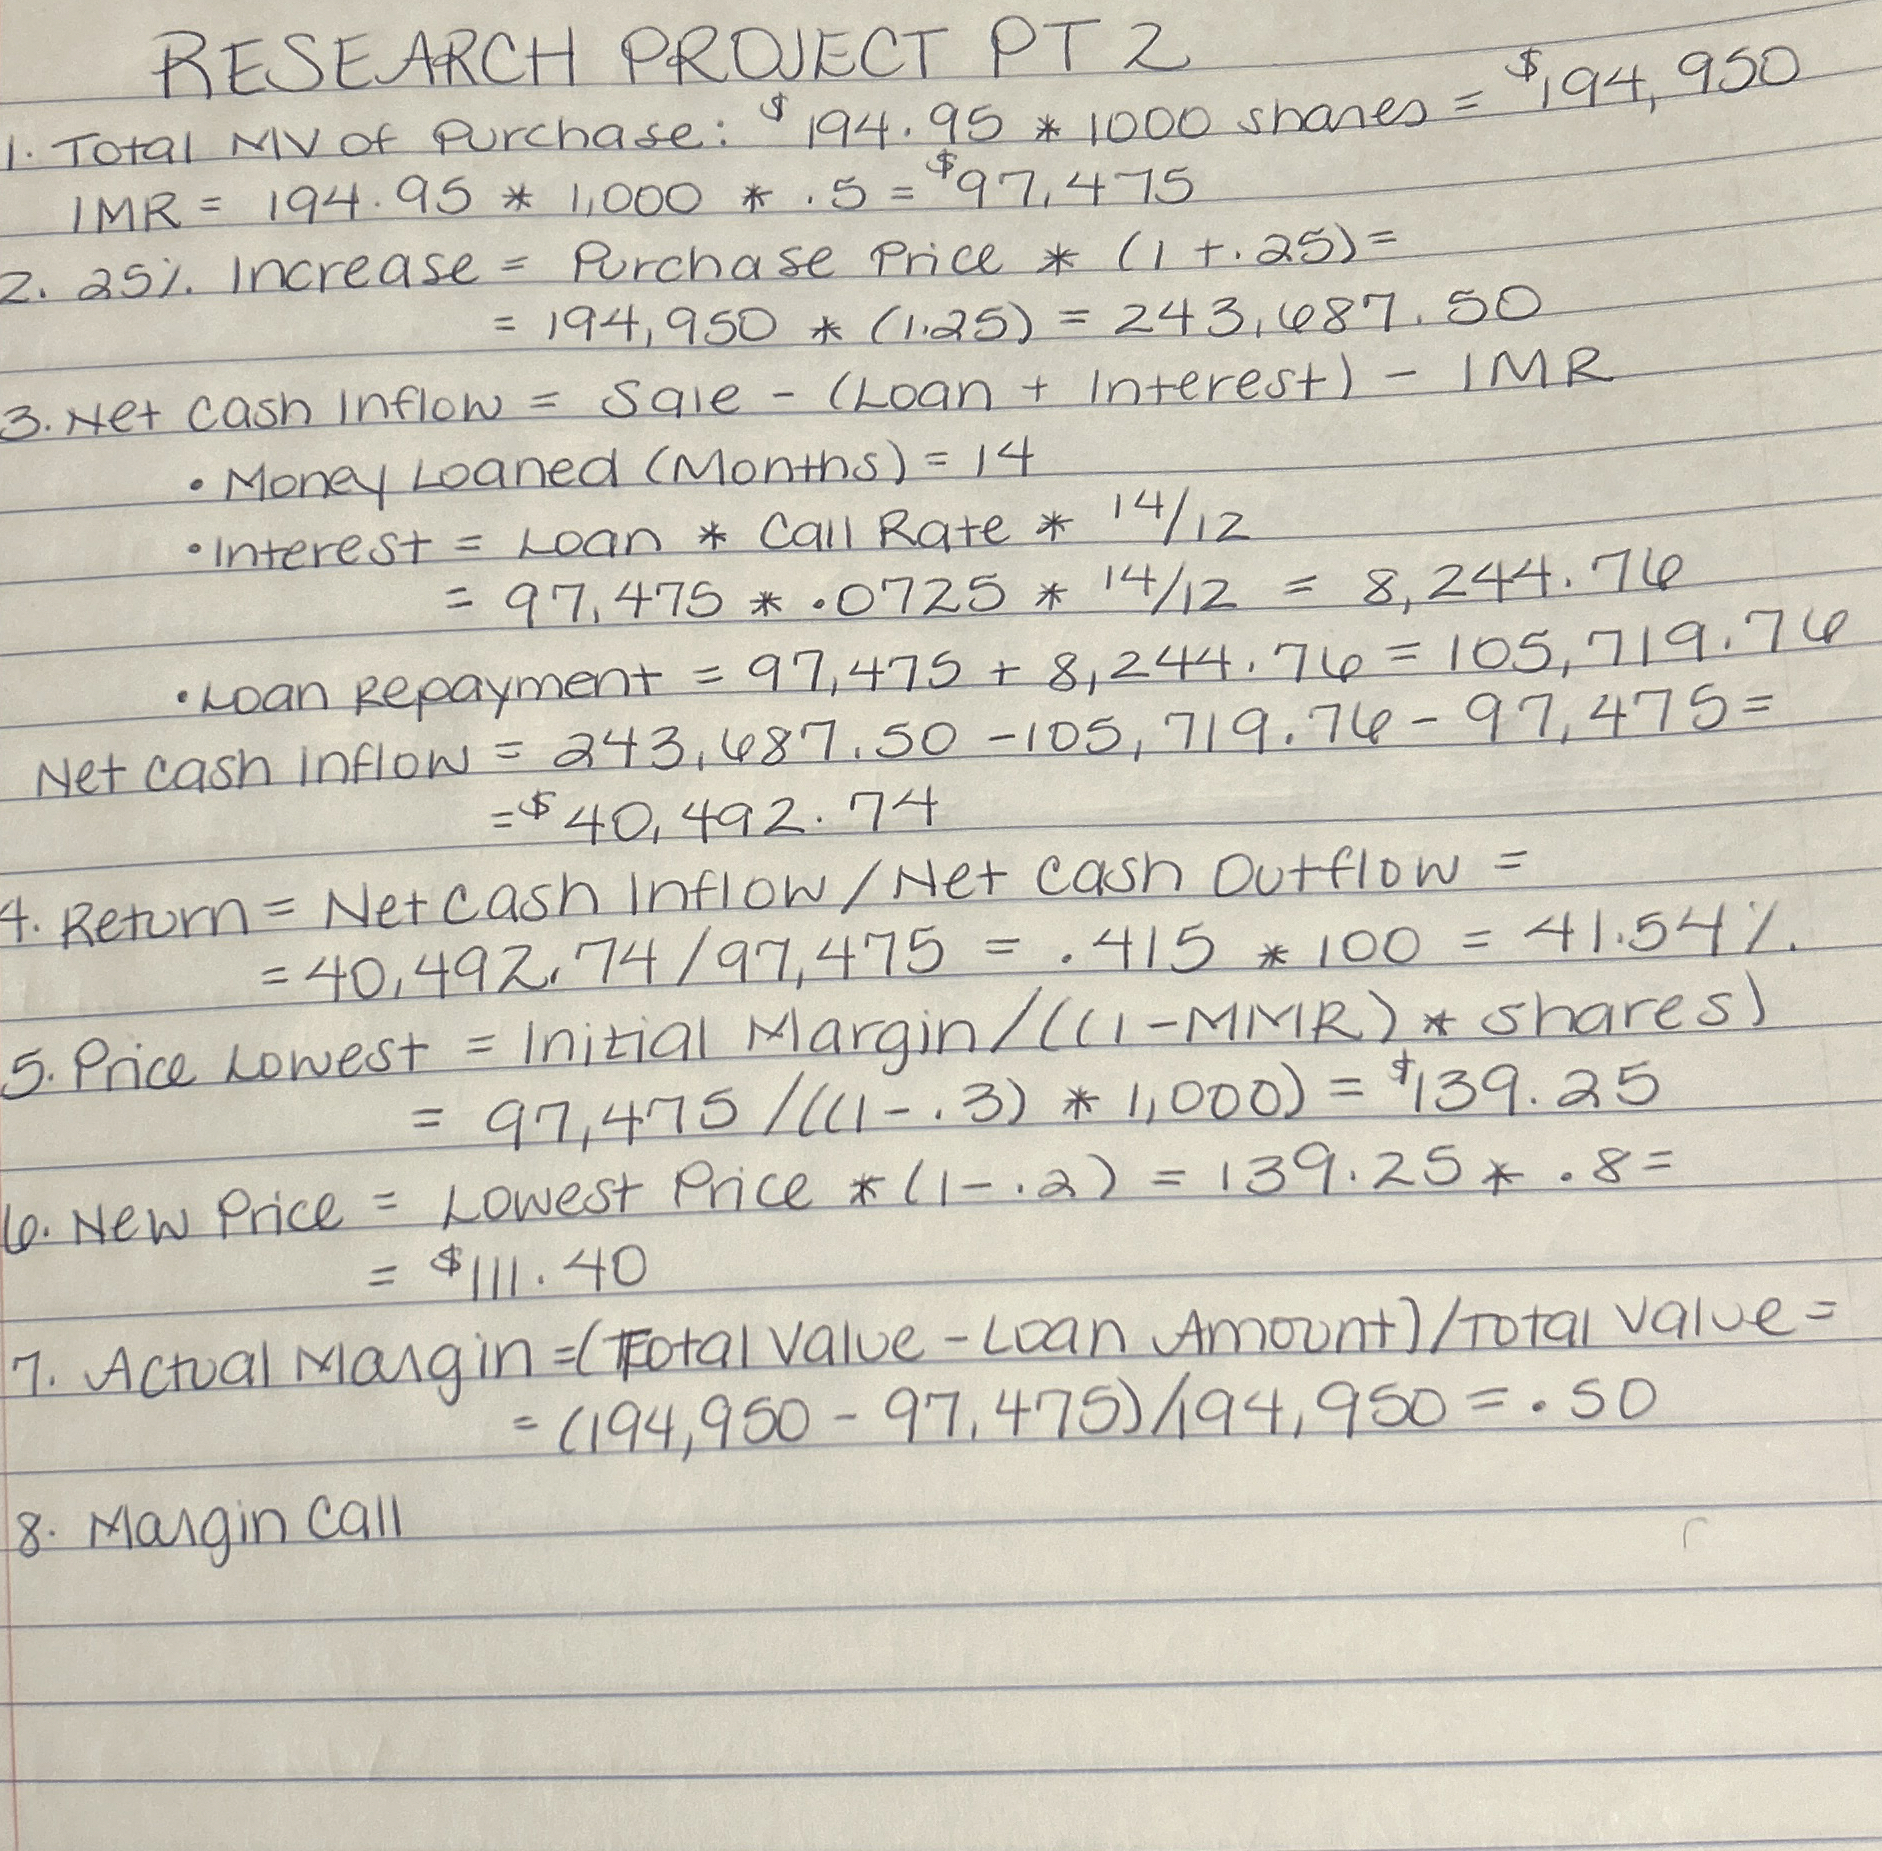 RESEARCH PROJECT PT 2
1. Total MV of Purchase: $194.95 * 1000 shares = $194,950
IMR = 194.95 * 1,000 * .5 = $97,475
2. 25% Increase = Purchase Price * (1 + .25) =
= 194,950 * (1.25) = 243,687.50
3. Net Cash Inflow = Sale - (Loan + Interest) - IMR
• Money Loaned (Months) = 14
• Interest = Loan * Call Rate * 14/12
= 97,475 * .0725 * 14/12 = 8,244.76
• Loan Repayment = 97,475 + 8,244.76 = 105,719.76
Net cash inflow = 243,687.50 - 105,719.76 - 97,475 =
= $40,492.74
4. Return = Net Cash Inflow / Net Cash Outflow =
= 40,492.74 / 97,475 = .415 * 100 = 41.54%
5. Price Lowest = Initial Margin / ((1 - MMR) * shares)
= 97,475 / ((1 - .3) * 1,000) = $139.25
6. New Price = Lowest Price * (1 - .2) = 139.25 * .8 =
= $111.40
7. Actual Margin = (Total Value - Loan Amount) / Total Value =
= (194,950 - 97,475) / 194,950 = .50
8. Margin Call